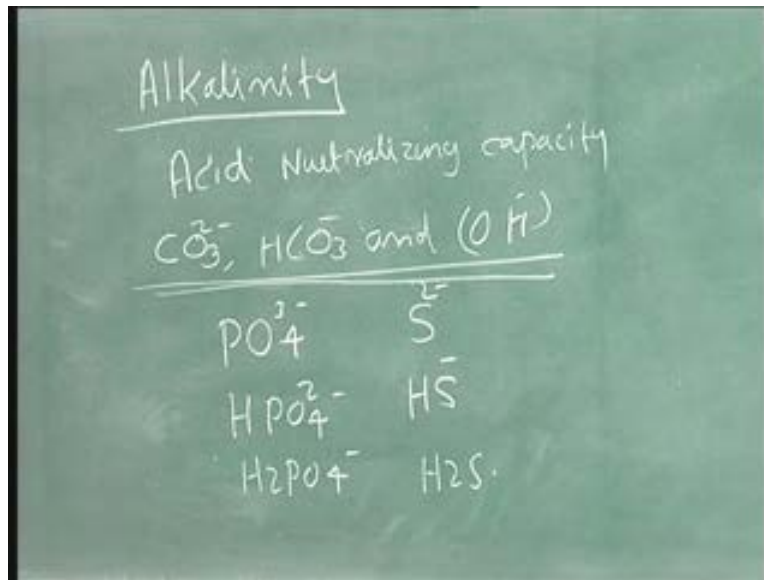 Alkalinity
Acid Nutralizing capacity
CO₃²⁻, HCO₃⁻ and (OH⁻)
PO₄³⁻ S²⁻
HPO₄²⁻ HS⁻
H₂PO₄⁻ H₂S.